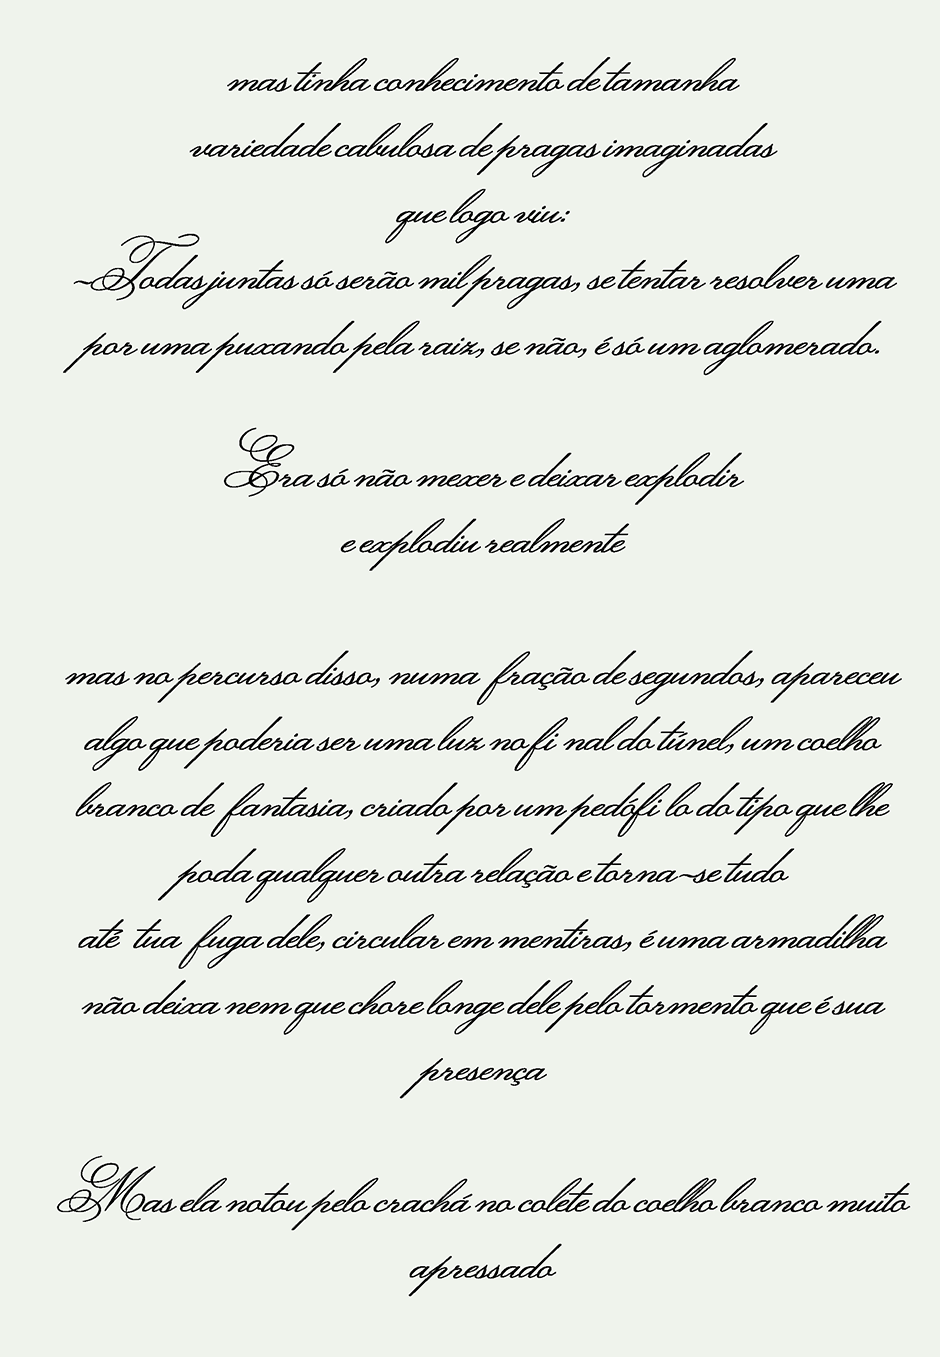 mas tinha conhecimento de tamanha
variedade cabulosa de pragas imaginadas
que logo viu:
-Todas juntas só serão mil pragas, se tentar resolver uma
por uma puxando pela raiz, se não, é só um aglomerado.
Era só não mexer e deixar explodir
e explodiu realmente
mas no percurso disso, numa fração de segundos, apareceu
algo que poderia ser uma luz no fi nal do túnel, um coelho
branco de fantasia, criado por um pedófi lo do tipo que lhe
poda qualquer outra relação e torna-se tudo
até tua fuga dele, circular em mentiras, é uma armadilha
não deixa nem que chore longe dele pelo tormento que é sua
presença
Mas ela notou pelo crachá no colete do coelho branco muito
apressado